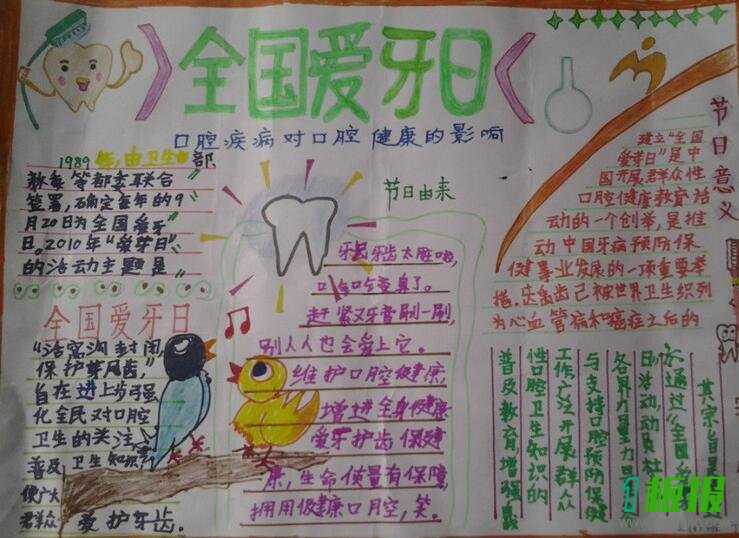 全国爱牙日
口腔疾病对口腔健康的影响
1989年,由卫生部
教委等部委联合
签署,确定每年的9
月20日为全国爱牙
日。2010年“爱牙日”
的活动主题是
全国爱牙日
“活窝沟封闭,
保护芽尽齿”
自在进上步强
化全民对口腔
卫生的关注
普及卫生知识
使广大
群众爱护牙齿。
节日由来
牙齿太脏啦,
变臭了。
赶紧又牙膏刷一刷,
别人人也会爱上它。
维护口腔健康,
增进全身健康
爱牙护齿保健
康,生命质量有保障,
拥用健康口腔,笑。
节日意义
建立“全国
爱牙日”是中
国开展群众性
口腔健康教育活
动的一个创举,是推
动中国牙病预防保
健事业发展的一项重要举
措。齿已被世界卫生织列
为心血管病和癌症之后的
其宗旨是
通过“全国
日活动,动员社
各界力量
与支持口腔预防保健
工作广泛开展群众
性口腔卫生知识的
普及教育增强
板报